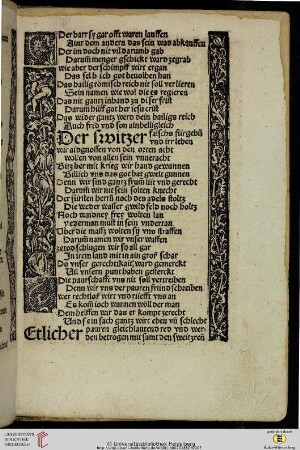 Der bart sy gar offt waren lauffen
Ainr dem andern das sein was abkauffen
Der im doch nit vil darumb gab
Darum menger geschickt ward zegrab
wie aber der schimpff wirt ergan
Das selb ich got bevolhen han
Das hailig römisch reich nit soll verlieren
Sein namen wie wol die es regieren
Das nit gantz in hand zu diser frist
Darum hilff got her iesu crist
Das wider gantz werd dein hailigs reich
Auch frid vnd son ainhelligleich
Der switzer falschs fürgebñ
vnd ir leben
wir aidgnossen von den orten acht
wollen von allen sein vnueracht
Bitz her mit krieg wir hand gewunnen
Billich vns das got hat gweit gunnen
Denn wir sind gantz frum lüt vnd gerecht
Darum wir nit sein solten knecht
Der fürsten herrñ noch des adels stoltz
Die weder wasser gwild feld noch holtz
Noch waidney frey wolten lan
yederman must in sein vndertan
Uber die mass wolten sy vns straffen
Darum namen wir vnser waffen
ze tod schlagen wir so all gar
In irem land mit in ain gros schar
Do ynser gerechtikait ward gemerckt
Uil ynsern punt haben gesterckt
Die paurschafft vns nit soll vertreiben
Denn wir vns der pauren frund schreiben
wer rechtlos wirt vnd rüefft vns an
Es kom ioch wannen woll der man
Dem helffen wir das er kompt ze recht
Und sei sach gantz wirt eben vñ schlecht
Etlicher pauren gleichlautend red vnd wer
den betrogen mit samt den swaitzern
UNIVERSITÄTS-
BIBLIOTHEK
HEIDELBERG
© Universitätsbibliothek Heidelberg